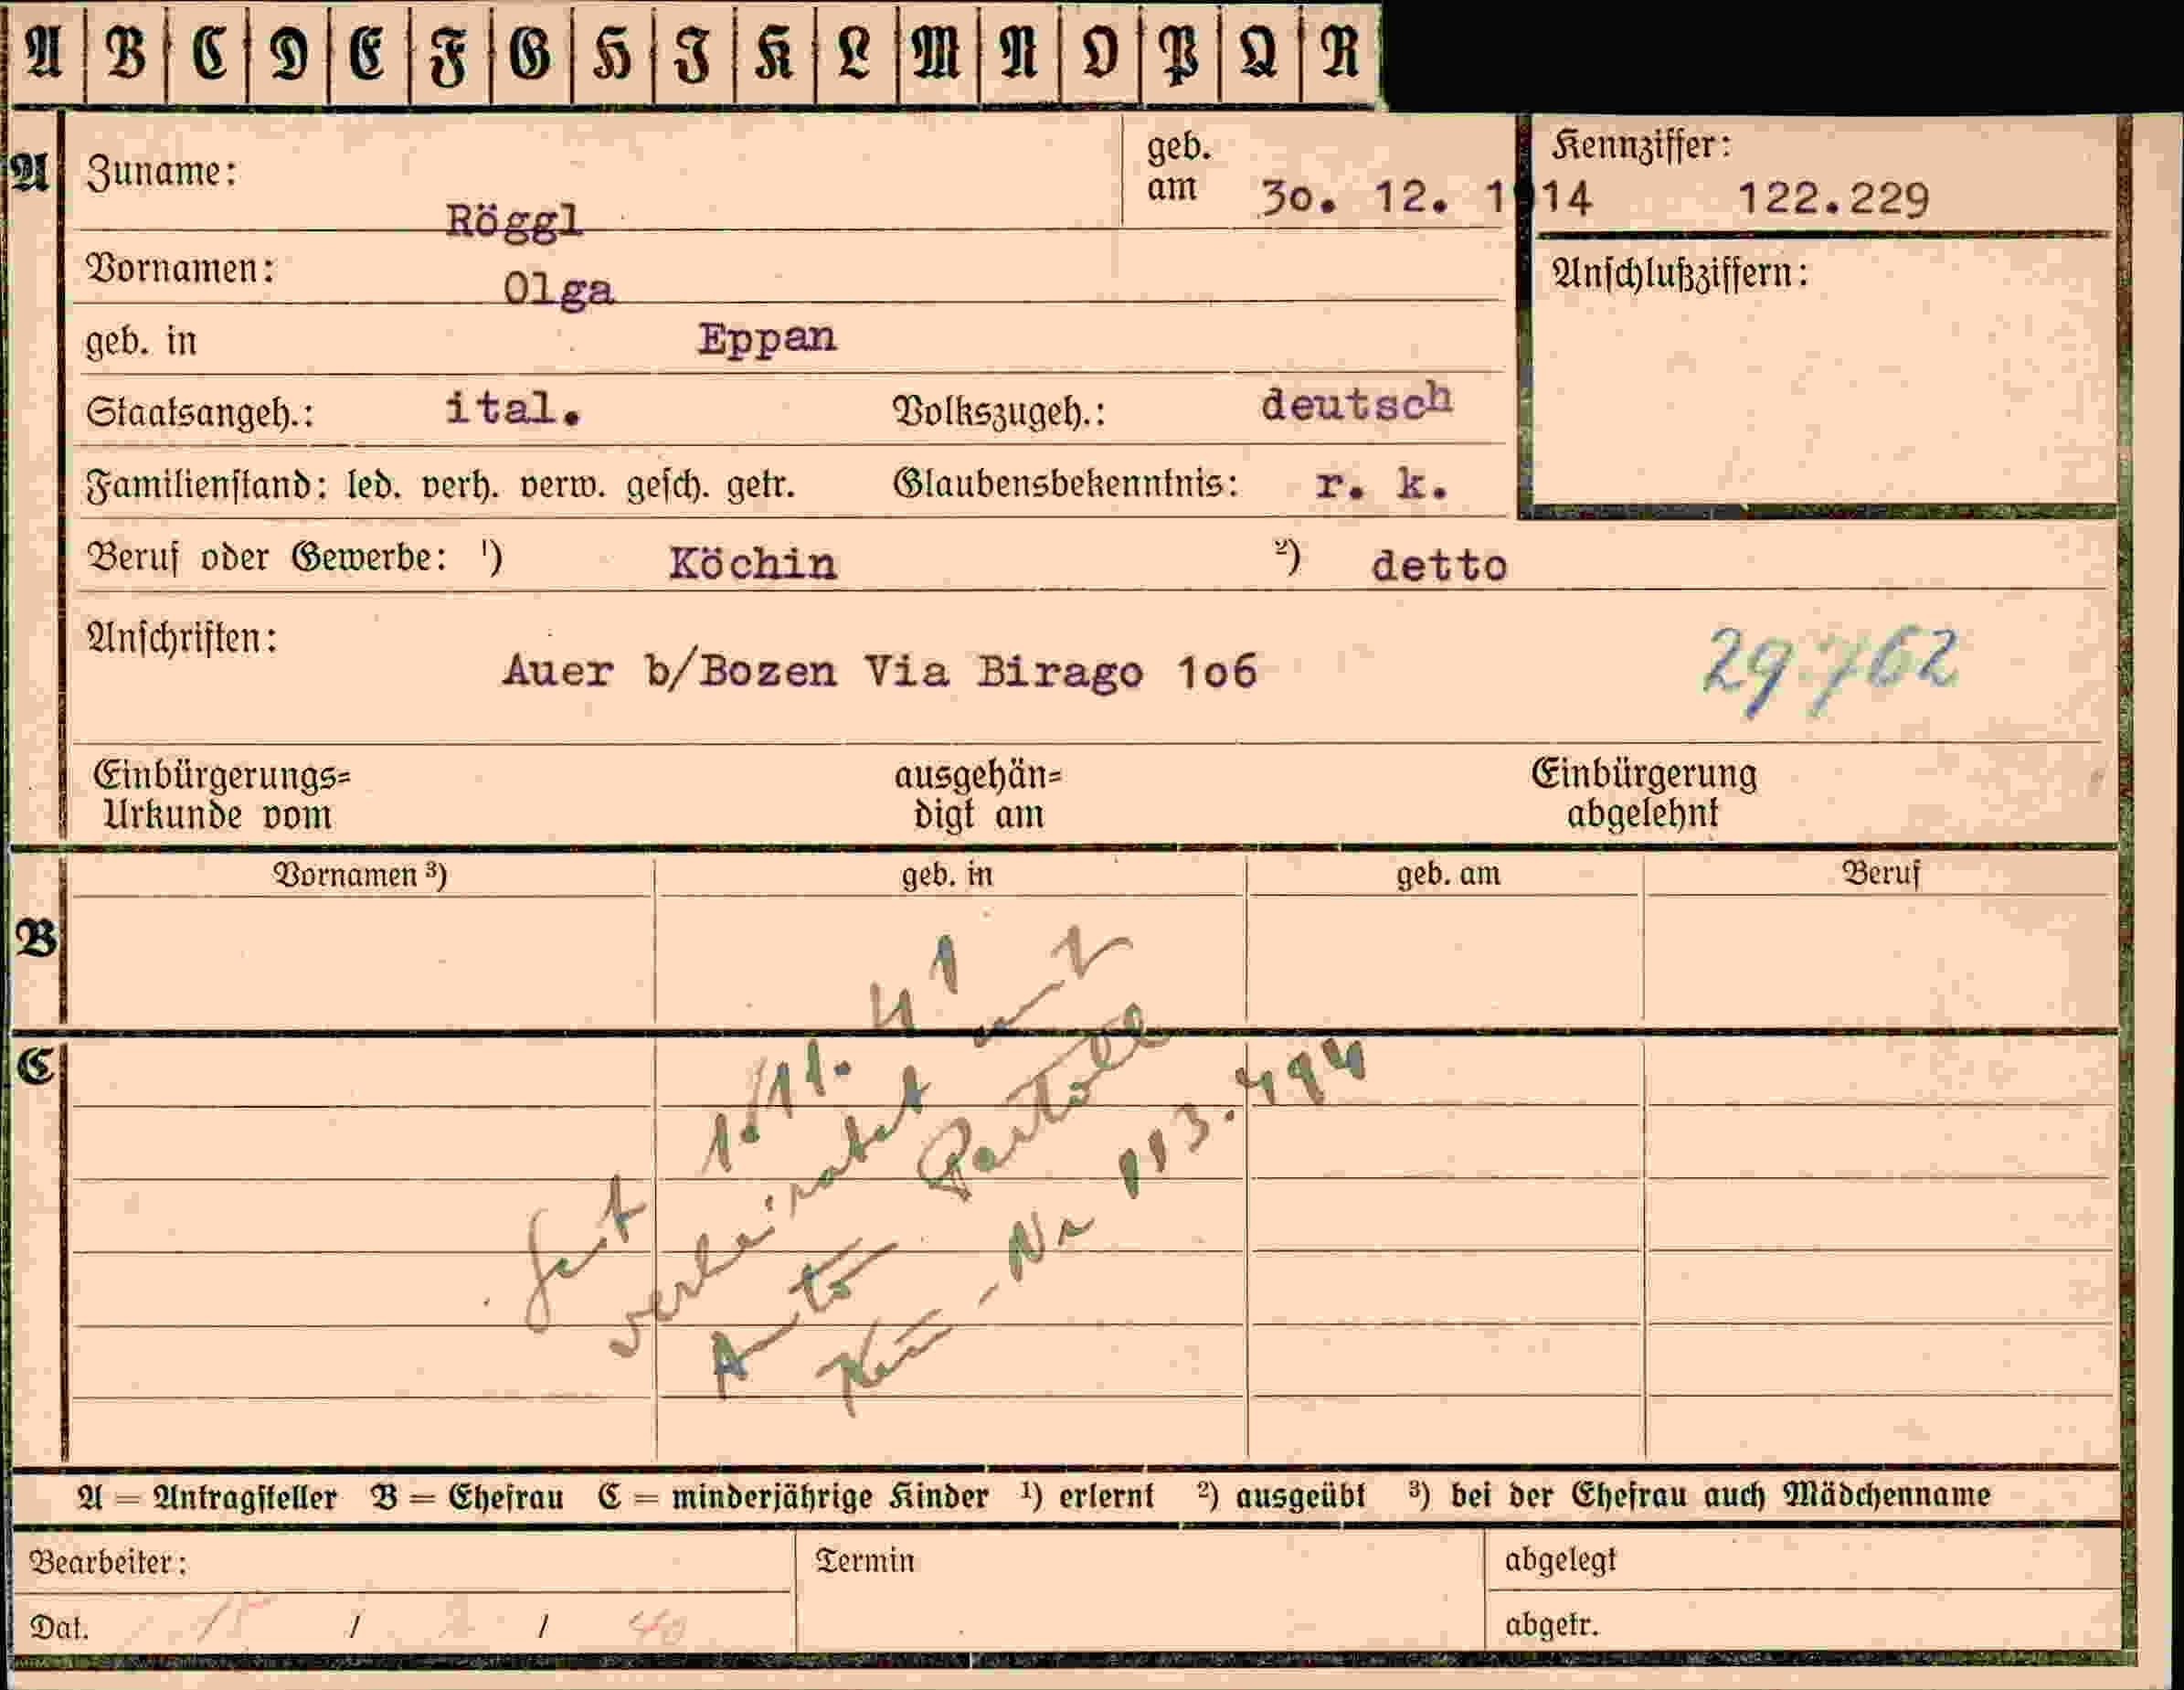 A B C D E F G H I K L M N O P Q R
A Zuname: Röggl
geb. am 30. 12. 1914
Kennziffer: 122.229
Vornamen: Olga
Anschlußziffern:
geb. in Eppan
Staatsangeh.: ital. Volkszugeh.: deutsch
Familienstand: led. verh. verw. gesch. getr. Glaubensbekenntnis: r. k.
Beruf oder Gewerbe: ¹) Köchin ²) detto
Anschriften: Auer b/Bozen Via Birago 1o6
29762
Einbürgerungs=
Urkunde vom
ausgehän=
digt am
Einbürgerung
abgelehnt
Vornamen ³) geb. in geb. am Beruf
B
C
Seit 1./11. 41
verheiratet mit
Partoll
Nr 113.494
A = Antragsteller B = Ehefrau C = minderjährige Kinder ¹) erlernt ²) ausgeübt ³) bei der Ehefrau auch Mädchenname
Bearbeiter: Termin abgelegt
Dat. / / 40 abgetr.